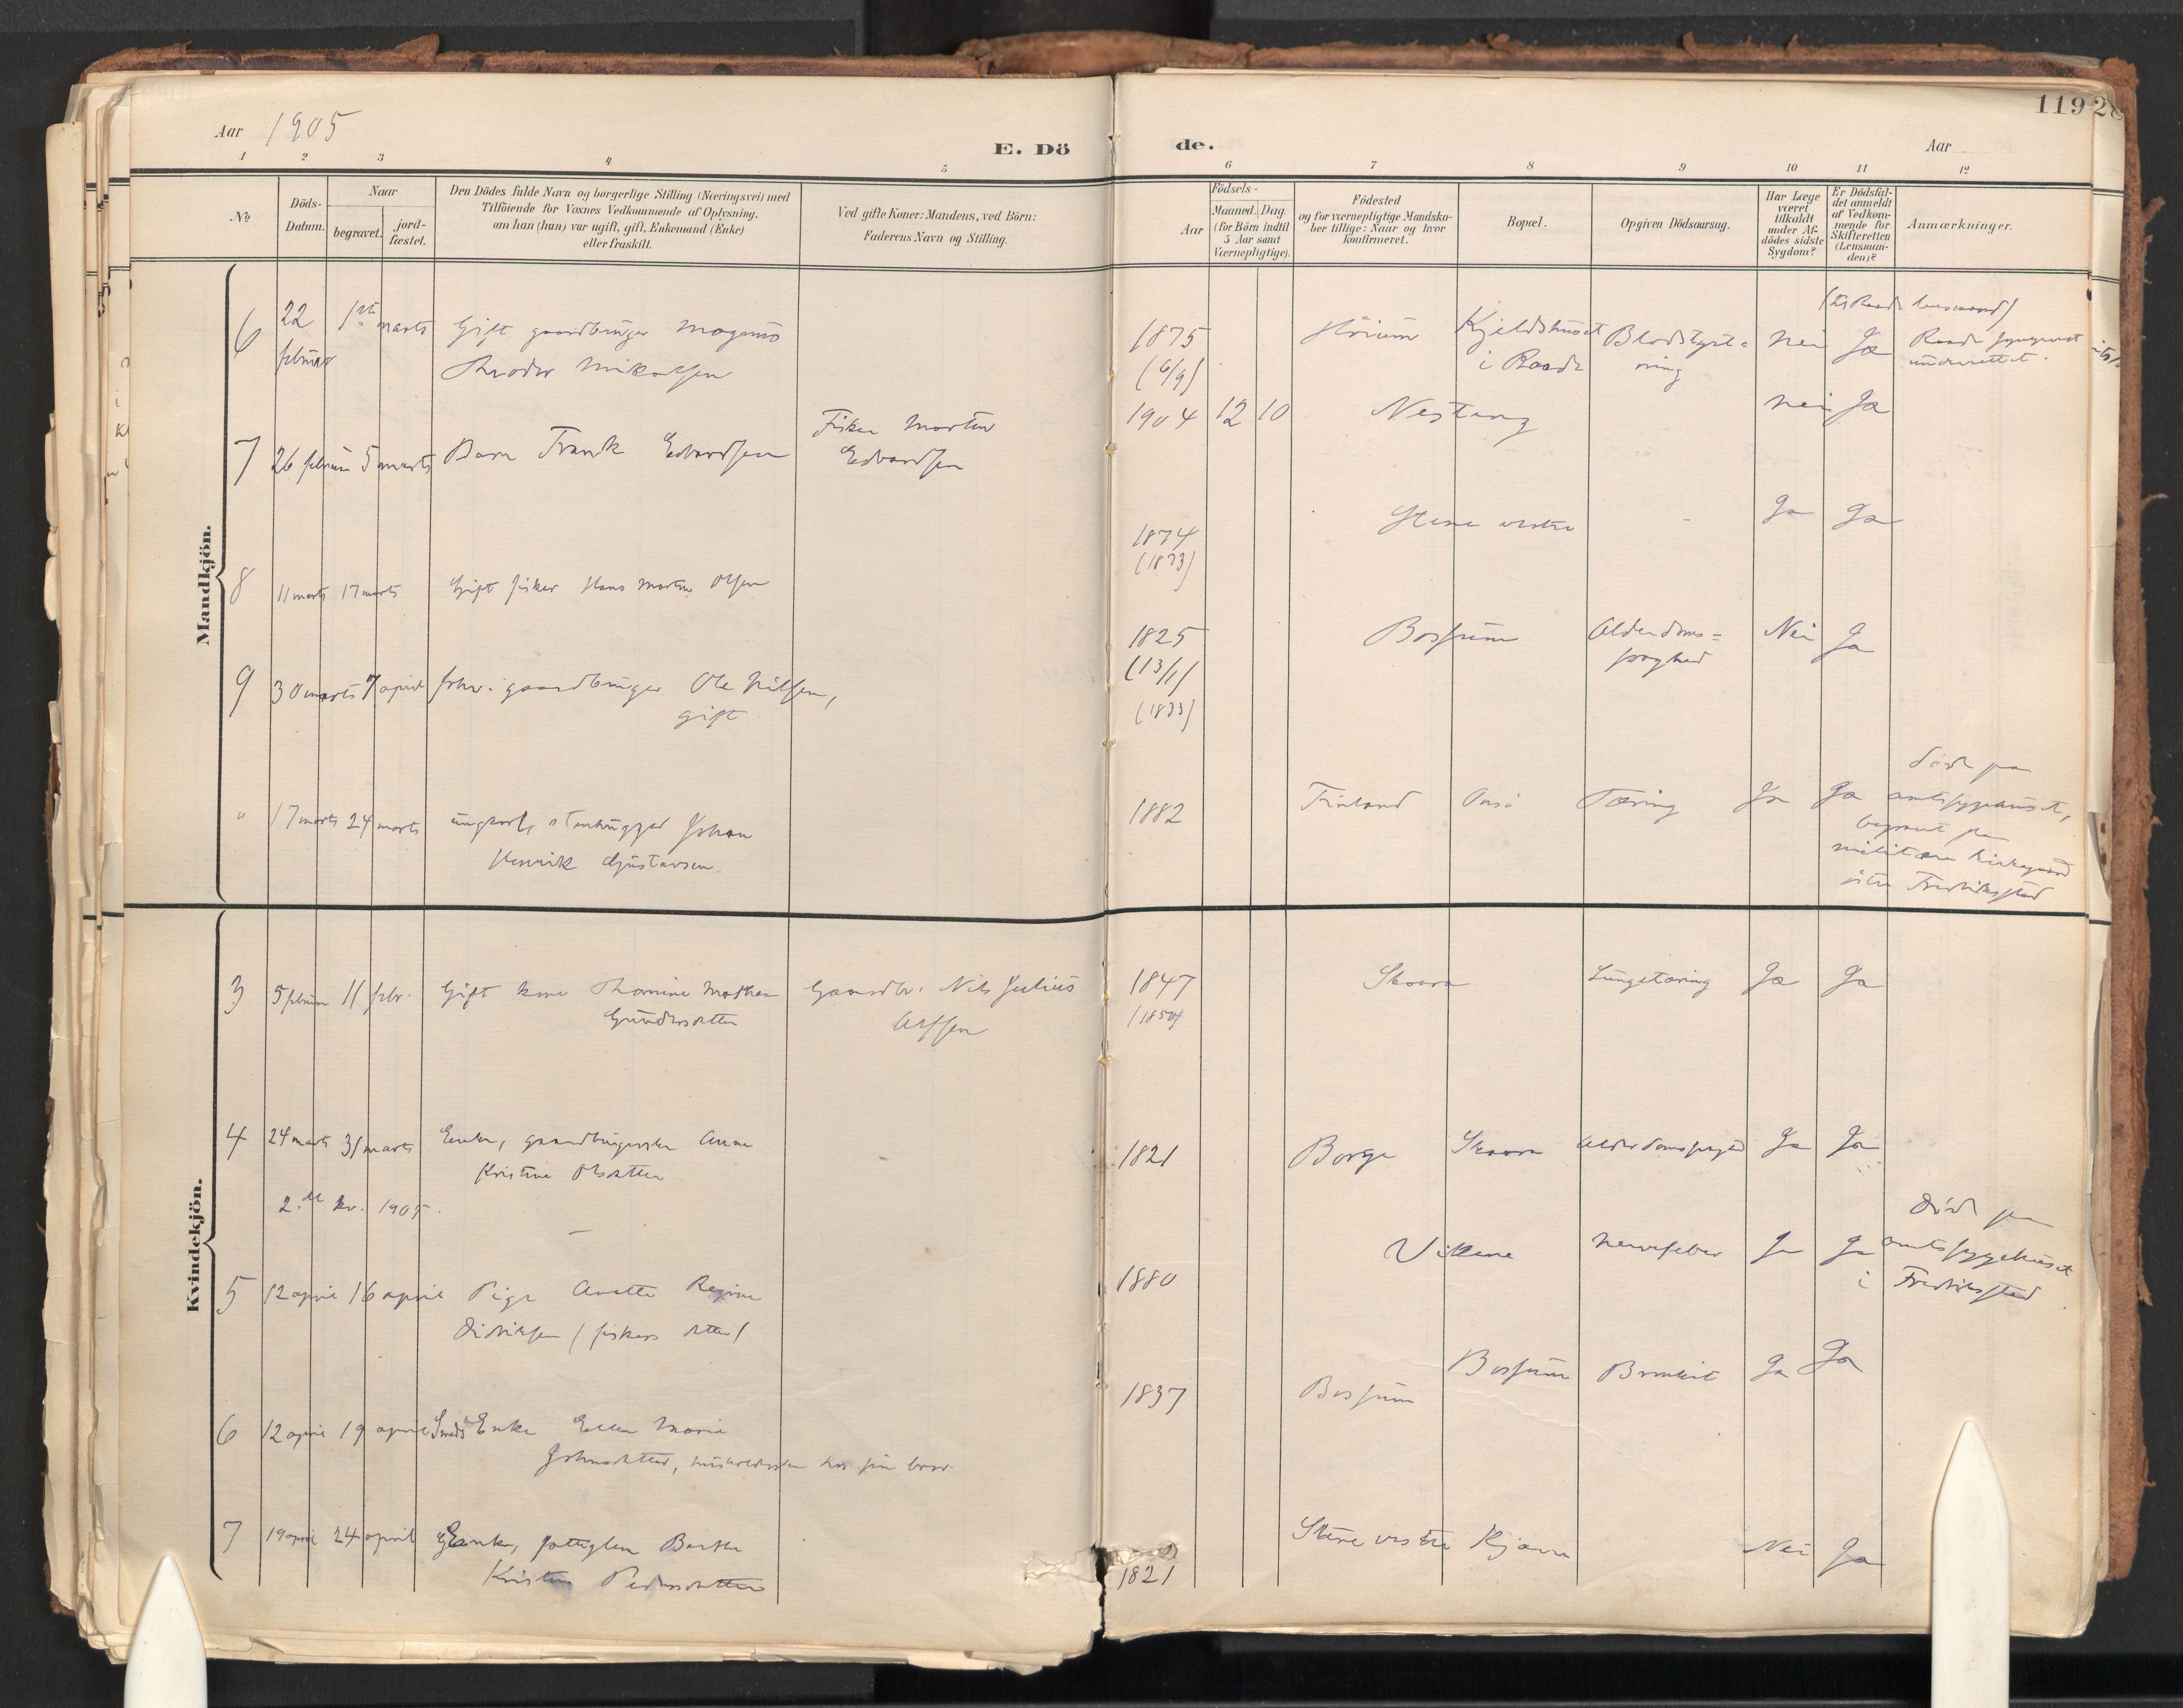 Aar 1905
E. Döde.
Aar
119
1 2 3 4 5 6 7 8 9 10 11 12
No
Döds-
Datum.
Naar
begravet.
jord-
fæstet.
Den Dödes fulde Navn og borgerlige Stilling (Næringsvei) med
Tilföiende for Voxnes Vedkommende af Oplysning,
om han (hun) var ugift, gift, Enkemand (Enke)
eller fraskilt.
Ved gifte Koner: Mandens, ved Börn:
Faderens Navn og Stilling.
Födsels-
Aar
Maaned. Dag.
(for Börn indtil
5 Aar samt
Værnepligtige).
Födested
og for værnepligtige Mandska-
ber tillige: Naar og hvor
konfirmeret.
Bopæl.
Opgiven Dödsaarsag.
Har Læge
været
tilkaldt
under Af-
dödes sidste
Sygdom?
Er Dödsfal-
det anmeldt
af Vedkom-
mende for
Skifteretten
(Lensman-
den)?
Anmærkninger.
Mandkjön.
6 22 februar 1ste marts Gift gaardbruger Magnus
Theodor Mikalsen
1875
(6/9)
Kjeldshuset
i Raade
Blodstyrt-
ning
Nei Ja
7 26 februar 5 marts Barn Frank Edvardsen
Fisker Morten
Edvardsen
1904 12 10 Nesteng Nei Ja
8 11 marts 17 marts Gift fisker Hans Martin Olsen
1874
(1873)
Stene vestre - Ja Ja
9 30 marts 7 april forhv. gaardbruger Ole Nilsen,
gift
1825
(13/1)
(1833)
Bossum Alderdoms-
svaghed
Nei Ja
" 17 marts 24 marts ungkarl, stenhugger Johan
Henrik Gustavsen
1882 Finland Tæring Ja Ja
död paa
amtssygehuset,
begravet paa
militære kirkegaard
i Fredriksstad
Kvindekjön.
3 5 februar 11 febr. Gift kone Thomine Mathea
Gundersdatter
Gaardbr. Nils Julius
Olsen
1847
(1854)
Skaara Lungetæring Ja Ja
4 24 marts 31 marts Enke, gaardbrugerske Anne
Kristine Olsdatter
1821 Borge Skaara Alderdomssvaghed Ja Ja
2det kv. 1905.
5 12 april 16 april Pige Anette Regine
Didriksen (fiskers datter)
1880 Vikene Nervefeber Ja Ja
Död paa
amtssygehuset
i Fredriksstad
6 12 april 19 april Smeds Enke Ellen Maria
Johnsdatter, husholderske hos sin bror.
1837 Bossum Bossum Bronkit Ja Ja
7 19 april 24 april Enke, fattiglem Berthe
Kristine Pedersdatter
1821 Stene vestre Kjærre Nei Ja